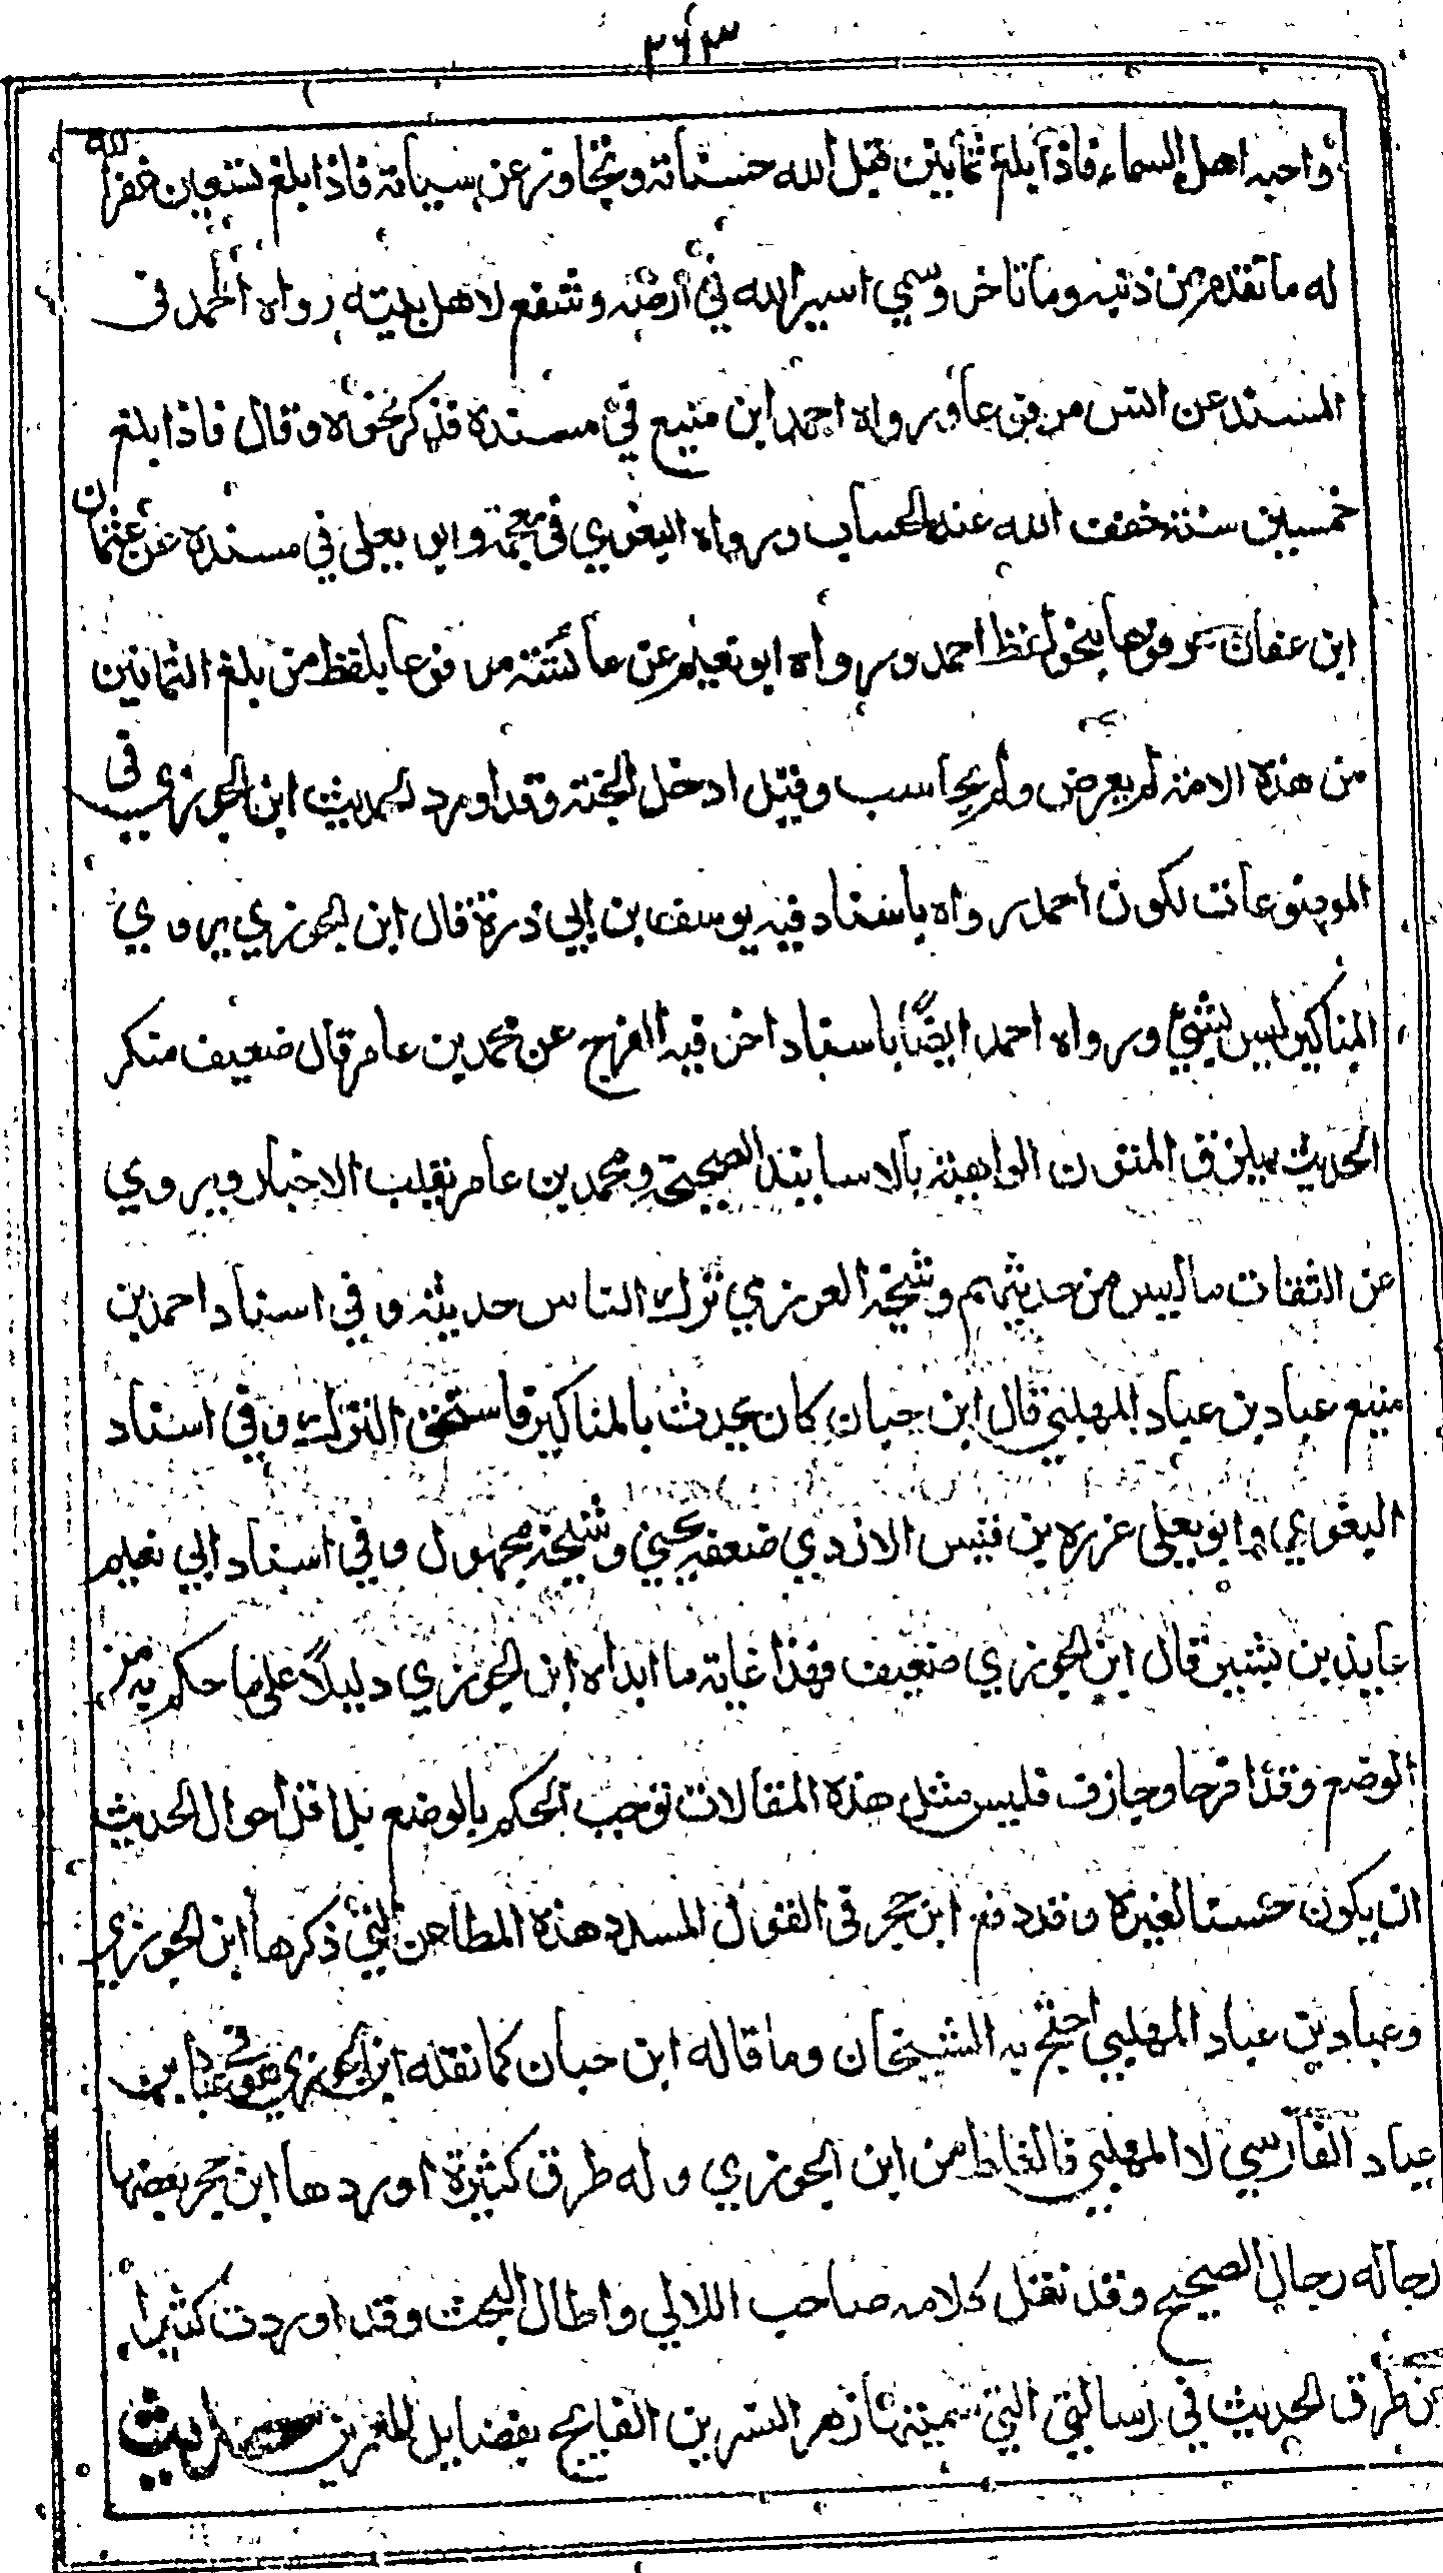 ٢٦٣
واحبه اهل السماء فاذا بلغ ثمانين قبل الله حسناته وتجاوز عن سياته فاذا بلغ تسعين غفر الله
له ما تقدم من ذنبه وما تاخر وسمي اسير الله في أرضه وشفع لاهل بيته رواه احمد في
المسند عن انس مرفوعا ورواه احمد ابن منيع في مسنده فذكر نحوه وقال فاذا بلغ
خمسين سنة خفف الله عنه الحساب ورواه البغوي في معجمه وابو يعلى في مسنده عن عثمان
ابن عفان مرفوعا بنحو لفظ احمد ورواه ابو نعيم عن عائشة مرفوعا بلفظ من بلغ الثمانين
من هذه الامة لم يعرض ولم يحاسب وقيل ادخل الجنة وقد اورد الحديث ابن الجوزي في
الموضوعات لكون احمد رواه باسناد فيه يوسف بن ابي ذرة قال ابن الجوزي يروي
المناكير ليس بشيئ ورواه احمد ايضًا باسناد اخر فيه الفرج عن محمد بن عامر قال ضعيف منكر
الحديث يلزق المتون الواهية بالاسانيد الصحيحة ومحمد بن عامر يقلب الاخبار ويروي
عن الثقات ما ليس من حديثهم وشيخه العرزمي ترك الناس حديثه وفي اسناد احمد بن
منيع عباد بن عباد المهلبي قال ابن حبان كان يحدث بالمناكير فاستحق الترك وفي اسناد
البغوي وابو يعلى عزره بن قيس الازدي ضعفه يحيى وشيخه مجهول وفي اسناد ابي نعيم
عايذ بن نسير قال ابن الجوزي ضعيف فهذا غاية ما ابداه ابن الجوزي دليلاً على ما حكم به من
الوضع وقد افرط وجازف فليس مثل هذه المقالات توجب الحكم بالوضع بل اقل احوال الحديث
ان يكون حسنا لغيره وقد دفع ابن حجر في القول المسدد هذه المطاعن التي ذكرها ابن الجوزي
وعباد بن عباد المهلبي احتج به الشيخان وما قاله ابن حبان كما نقله ابن الجوزي هو في عباد بن
عباد الفارسي لا المهلبي فالغلط من ابن الجوزي وله طرق كثيرة اوردها ابن حجر بعضها
رجاله رجال الصحيح وقد نقل كلامه صاحب اللالي واطال البحث وقد اوردت كثيرا
من طرق الحديث في رسالتي التي سميتها زهر النسرين الفايح بفضايل المعمرين حديث